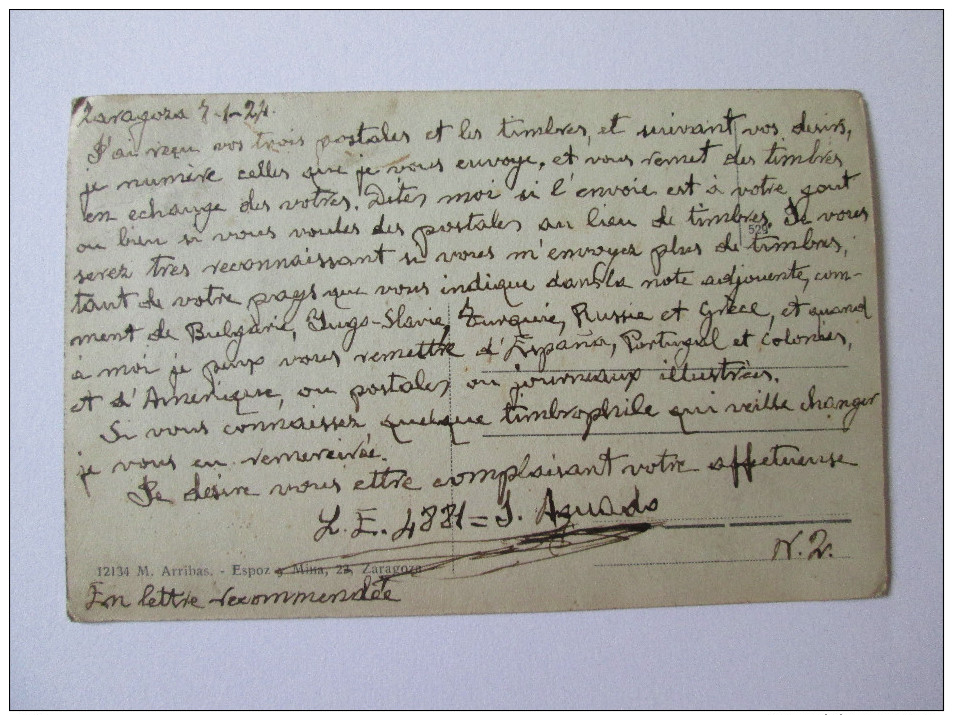 Zaragoza 7-1-24.
J'ai reçu vos trois postales et les timbres, et suivant vos desirs,
je numère celles que je vous envoye, et vous remet des timbres
en echange des votres. Ditès moi si l'envoie est à votre gout
ou bien si vous voules des postales au lieu de timbres. Je vous
529
serez tres reconnaissant si vous m'envoyez plus de timbres,
tant de votre pays que vous indique dans la note adjouente, com-
ment de Bulgarie, Jugo-Slavie, Turquie, Russie et Grèce, et quand
à moi je puux vous remettre d'España, Portugal et colonies,
et d'Amerique, ou postales ou journeaux illustrées.
Si vous connaissez quelque timbrophile qui veille changer
je vous en remerciré.
Je desire vous ettre complaisant votre affectueuse
L.E. 4881 = J. Aguado
N. 2.
12134 M. Arribas. - Espoz y Mina, 23, Zaragoza
En lettre recommendée